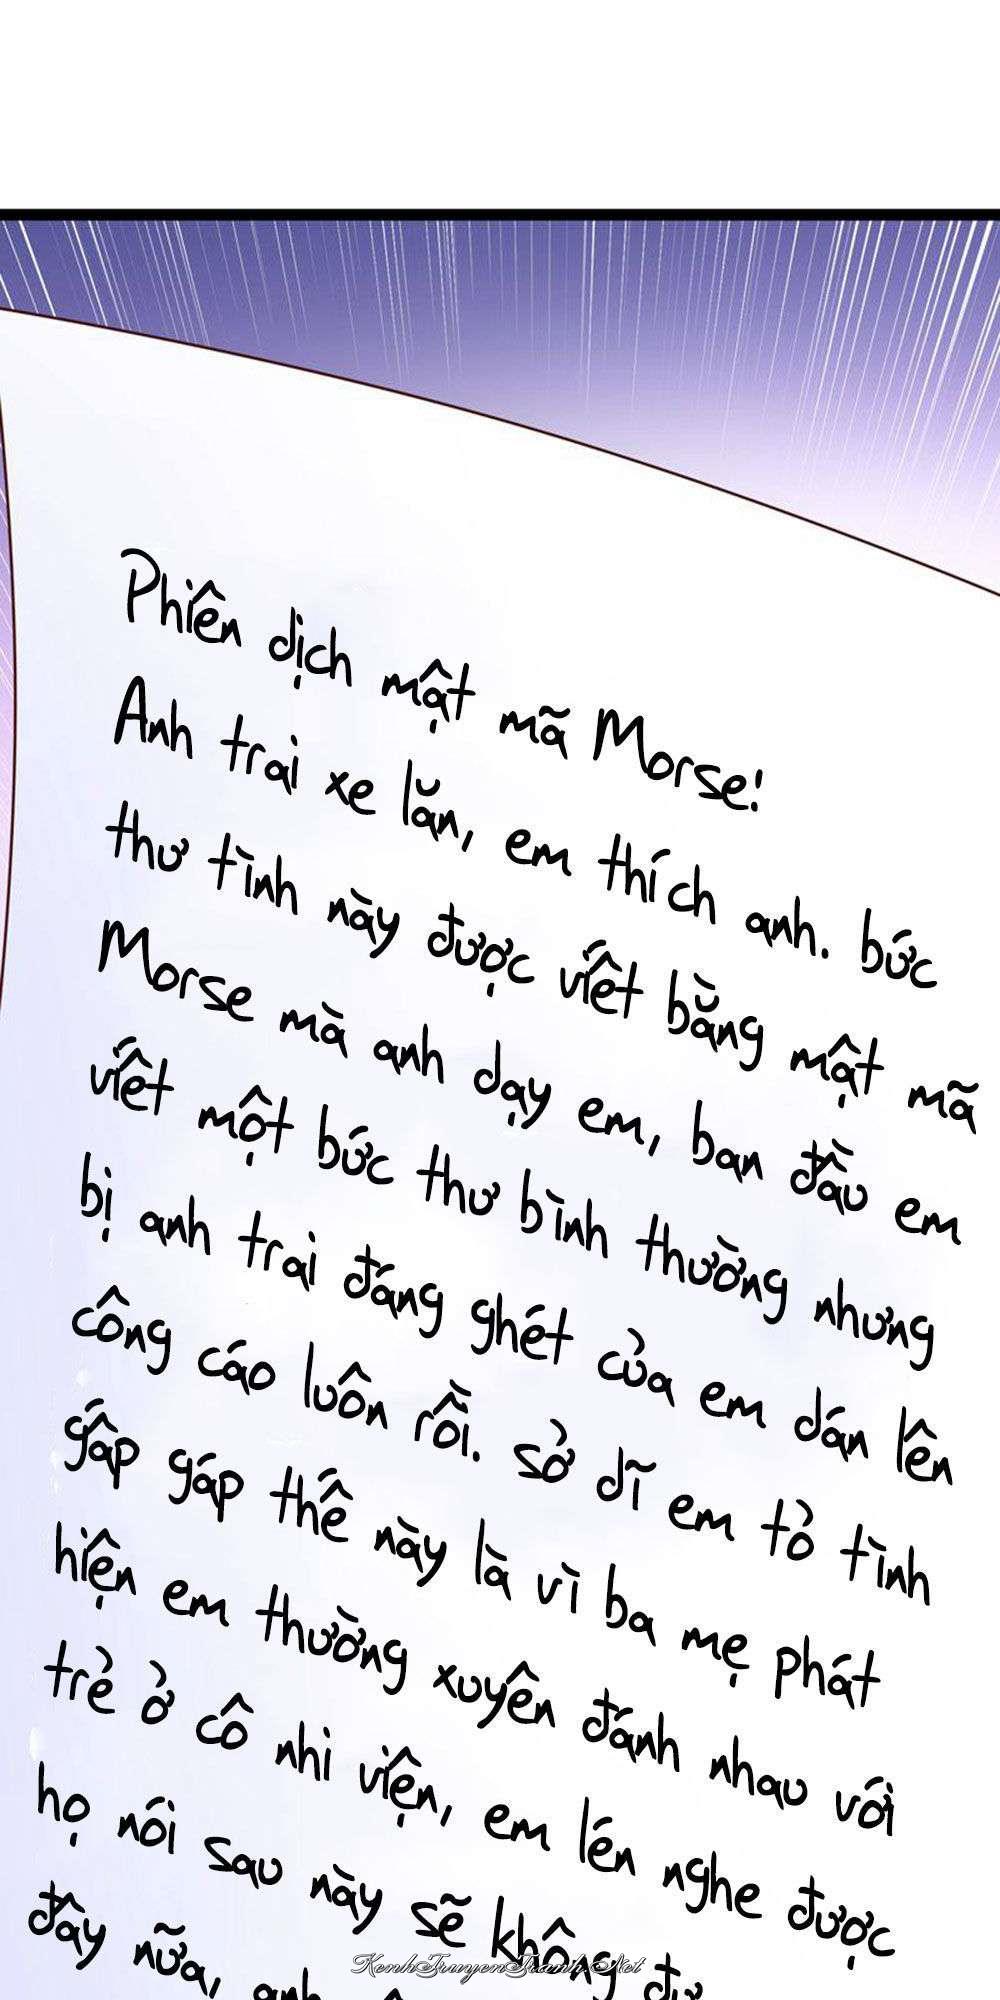 Phiên dịch mật mã Morse!
Anh trai xe lăn, em thích anh. bức
thư tình này được viết bằng mật mã
Morse mà anh dạy em, ban đầu em
viết một bức thư bình thường nhưng
bị anh trai đáng ghét của em dán lên
công cáo luôn rồi. sở dĩ em tỏ tình
gấp gáp thế này là vì ba mẹ phát
hiện em thường xuyên đánh nhau với
trẻ ở cô nhi viện, em lén nghe được
họ nói sau này sẽ không
đây nữa, anh
KenhTruyenTranh.Net